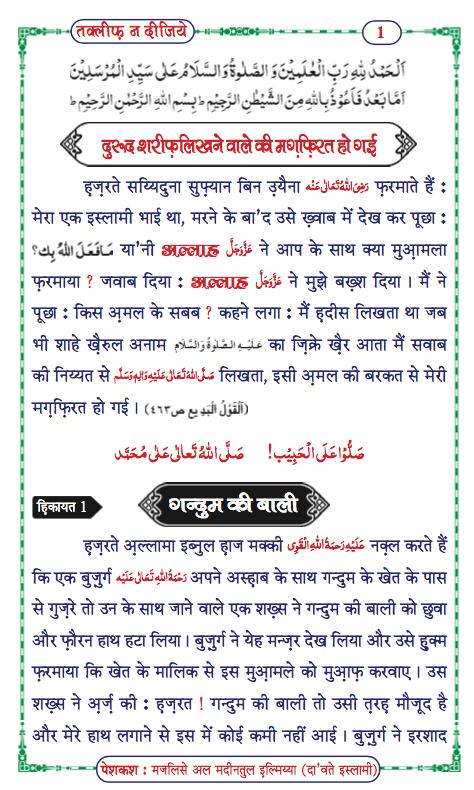 तक्लीफ़ न दीजिये
1
اَلْحَمْدُ لِلّٰهِ رَبِّ الْعٰلَمِيْنَ وَ الصَّلٰوةُ وَالسَّلَامُ عَلٰى سَيِّدِ الْمُرْسَلِيْنَ
اَمَّا بَعْدُ فَاَعُوْذُ بِاللّٰهِ مِنَ الشَّيْطٰنِ الرَّجِيْمِ ط بِسْمِ اللّٰهِ الرَّحْمٰنِ الرَّحِيْمِ ط
दुरूद शरीफ़ लिखने वाले की मग़फ़िरत हो गई
हज़रते सय्यिदुना सुफ़्यान बिन उ़यैना رَضِیَ اللّٰہُ تَعَالٰی عَنْہ फ़रमाते हैं :
मेरा एक इस्लामी भाई था, मरने के बा'द उसे ख़्वाब में देख कर पूछा :
مَا فَعَلَ اللّٰهُ بِك؟ या'नी अल्लाह عَزَّوَجَلَّ ने आप के साथ क्या मुआ़मला
फ़रमाया ? जवाब दिया : अल्लाह عَزَّوَجَلَّ ने मुझे बख़्श दिया । मैं ने
पूछा : किस अ़मल के सबब ? कहने लगा : मैं ह़दीस लिखता था जब
भी शाहे ख़ैरुल अनाम عَلَـیْہِ الصَّلٰوۃُ وَالسَّلَام का ज़िक्रे ख़ैर आता मैं सवाब
की निय्यत से صَلَّی اللّٰہُ تَعَالٰی عَلَیْہِ وَاٰلِہٖ وَسَلَّم लिखता, इसी अ़मल की बरकत से मेरी
मग़फ़िरत हो गई । (اَلْقَوْلُ الْبَدِیْع ص٤٦٣)
صَلُّوْا عَلَى الْحَبِيْب! صَلَّى اللّٰهُ تَعَالٰى عَلٰى مُحَمَّد
हिकायत 1
गन्दुम की बाली
हज़रते अ़ल्लामा इब्नुल ह़ाज मक्की عَلَیْہِ رَحْمَۃُ اللّٰہِ الْقَوِی नक़्ल करते हैं
कि एक बुज़ुर्ग رَحْمَۃُ اللّٰہِ تَعَالٰی عَلَیْہ अपने अस्ह़ाब के साथ गन्दुम के खेत के पास
से गुज़रे तो उन के साथ जाने वाले एक शख़्स ने गन्दुम की बाली को छुवा
और फ़ौरन हाथ हटा लिया । बुज़ुर्ग ने येह मन्ज़र देख लिया और उसे हुक्म
फ़रमाया कि खेत के मालिक से इस मुआ़मले को मुआ़फ़ करवाए । उस
शख़्स ने अ़र्ज़ की : ह़ज़रत ! गन्दुम की बाली तो उसी त़रह़ मौजूद है
और मेरे हाथ लगाने से इस में कोई कमी नहीं आई । बुज़ुर्ग ने इरशाद
पेशकश : मजलिसे अल मदीनतुल इ़ल्मिय्या (दा'वते इस्लामी)